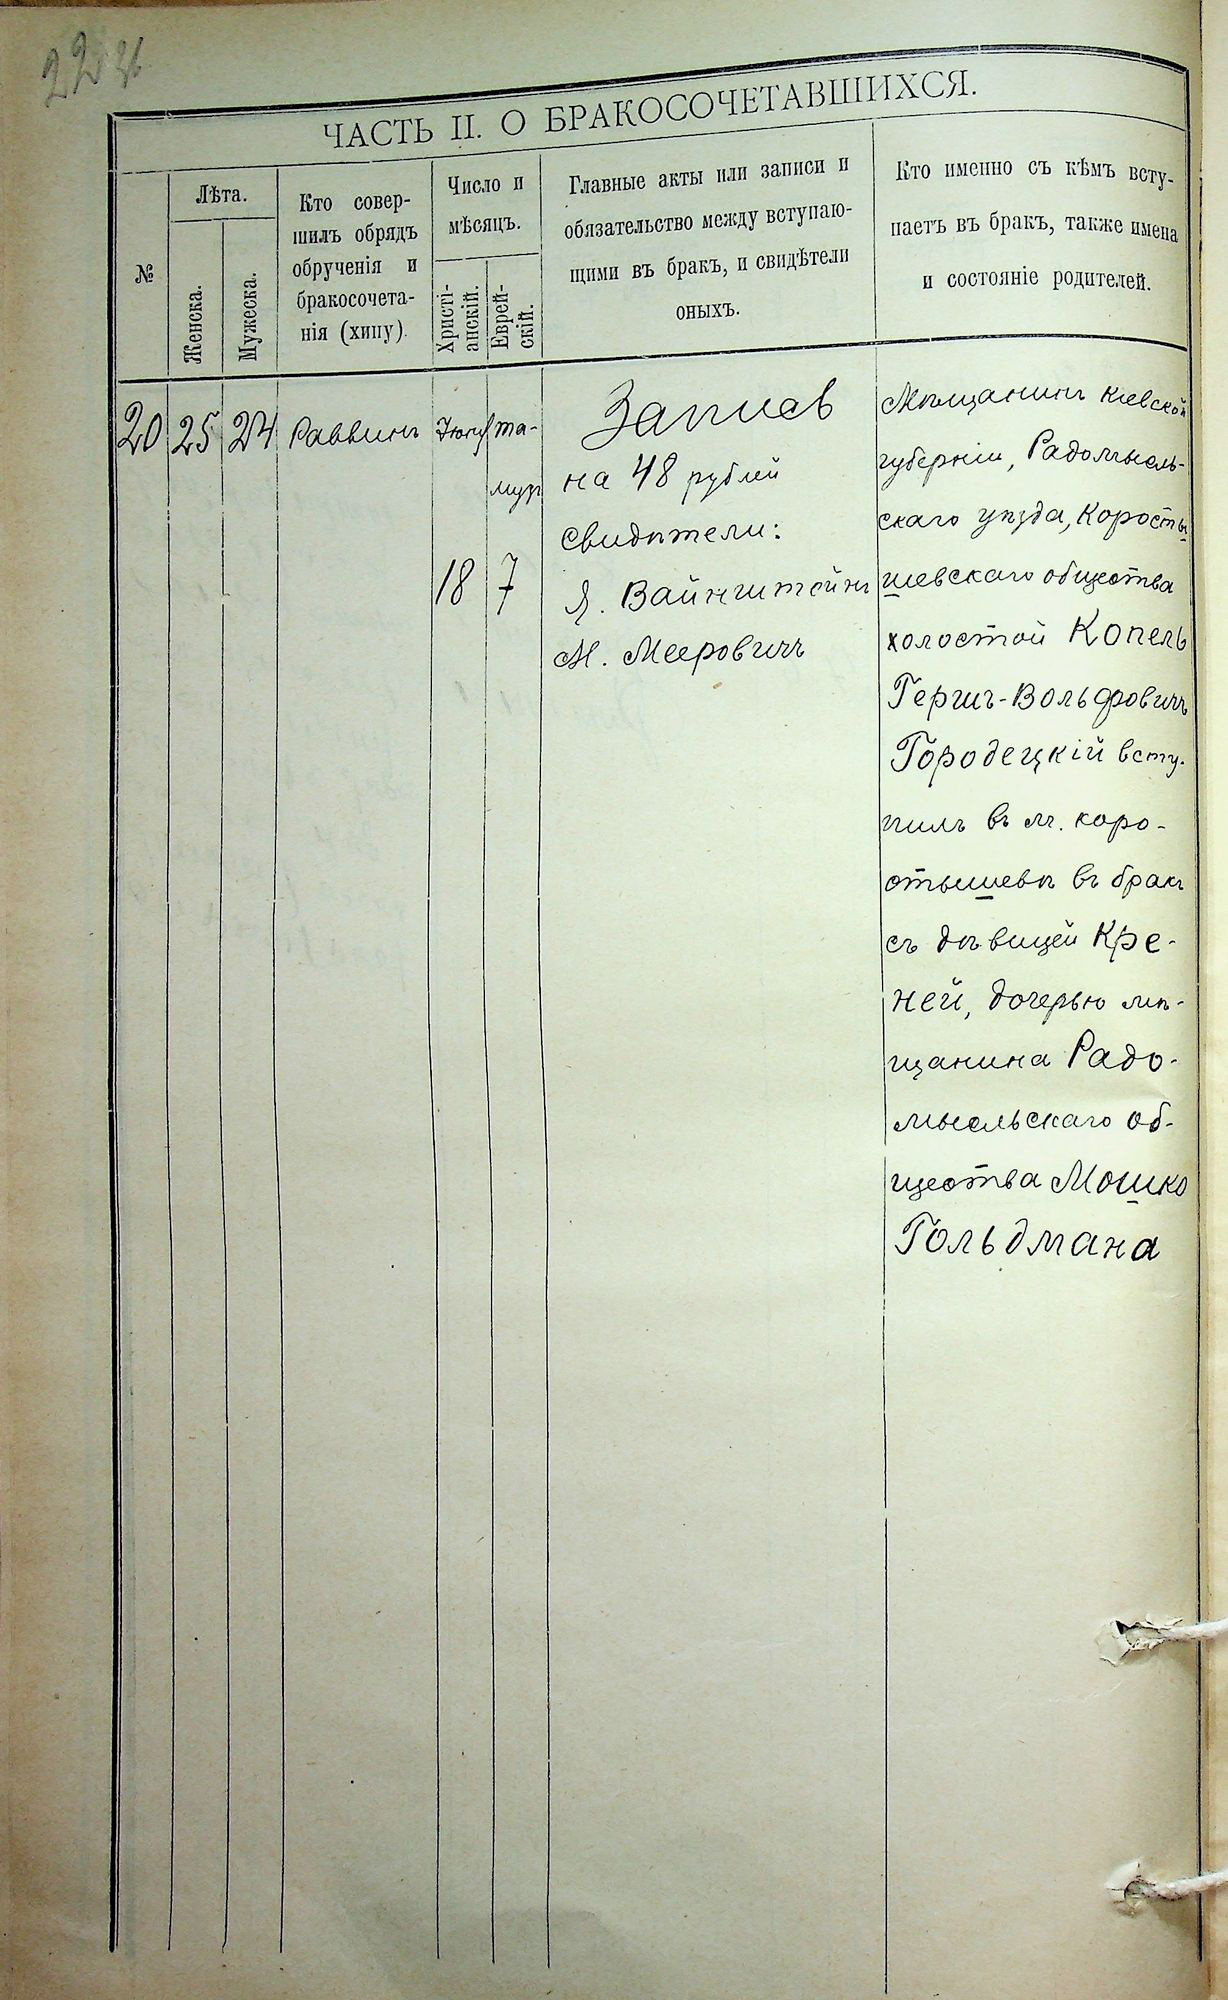 22
ЧАСТЬ II. О БРАКОСОЧЕТАВШИХСЯ.
№
Лѣта.
Женска.
Мужеска.
Кто совер-
шилъ обрядъ
обрученія и
бракосочета-
нія (хипу).
Число и
мѣсяцъ.
Христі-
анскій.
Еврей-
скій.
Главные акты или записи и
обязательство между вступаю-
щими въ бракъ, и свидѣтели
оныхъ.
Кто именно съ кѣмъ всту-
паетъ въ бракъ, также имена
и состояніе родителей.
20
25
24
Раввинъ
18
та-
музъ
7
Запись
на 48 рублей
свидѣтели:
Я. Вайнштейнъ
М. Мееровичъ
Мѣщанинъ кіевской
губерніи, Радомысль-
скаго уѣзда, Коросты
шевскаго общества
холостой Копель
Гершъ-Вольфовичъ
Городецкій всту-
пилъ въ м. коро-
стышевѣ въ бракъ
съ дѣвицей Кре-
ней, дочерью мѣ-
щанина Радо-
мысльскаго об-
щества Мошко
Гольдмана